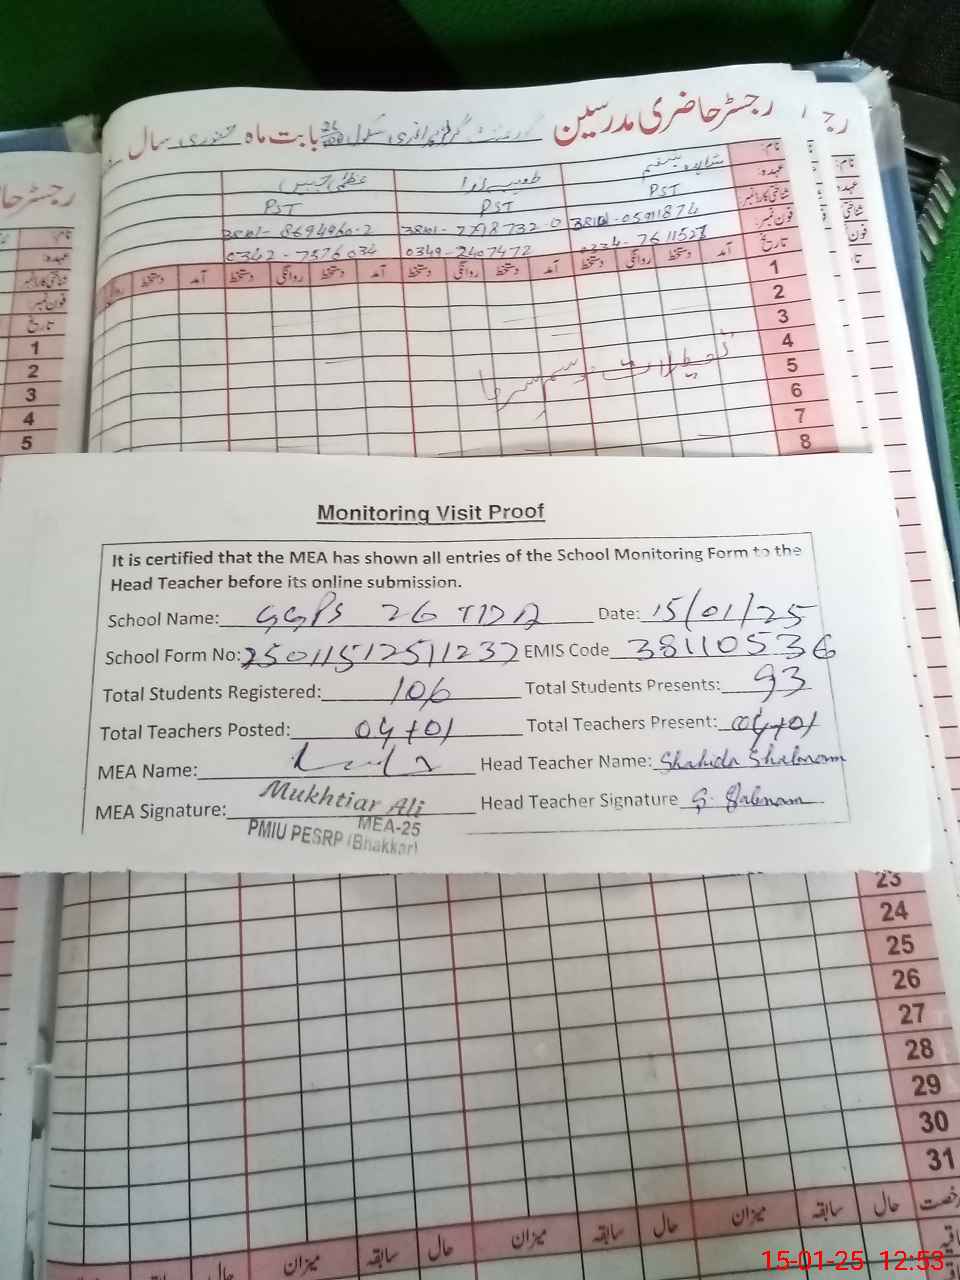 رجسٹر حاضری مدرسین گورنمنٹ گرلز پرائمری سکول 26 TDA بابت ماہ جنوری سال
نام:
عہدہ: PST PST PST
شناختی کارڈ نمبر:
فون نمبر: 0349-2407472 0342-7576034
تاریخ آمد دستخط روانگی دستخط آمد دستخط روانگی دستخط آمد دستخط
1
2
3
4
5
6
7
8
نام:
عہدہ:
شناختی کارڈ نمبر:
فون نمبر:
تاریخ
1
2
3
4
5
Monitoring Visit Proof
It is certified that the MEA has shown all entries of the School Monitoring Form to the
Head Teacher before its online submission.
School Name: GGPS 26 TDA Date: 15/01/25
School Form No: 25011512511237 EMIS Code 38110536
Total Students Registered: 106 Total Students Presents: 93
Total Teachers Posted: 04+01 Total Teachers Present: 04+01
MEA Name: Head Teacher Name: Shahida Shabnam
MEA Signature: Mukhtiar Ali Head Teacher Signature S. Shabnam
MEA-25
PMIU PESRP (Bhakkar)
23
24
25
26
27
28
29
30
31
رخصت حال سابقہ میزان حال سابقہ میزان حال سابقہ میزان حال
15-01-25 12:53